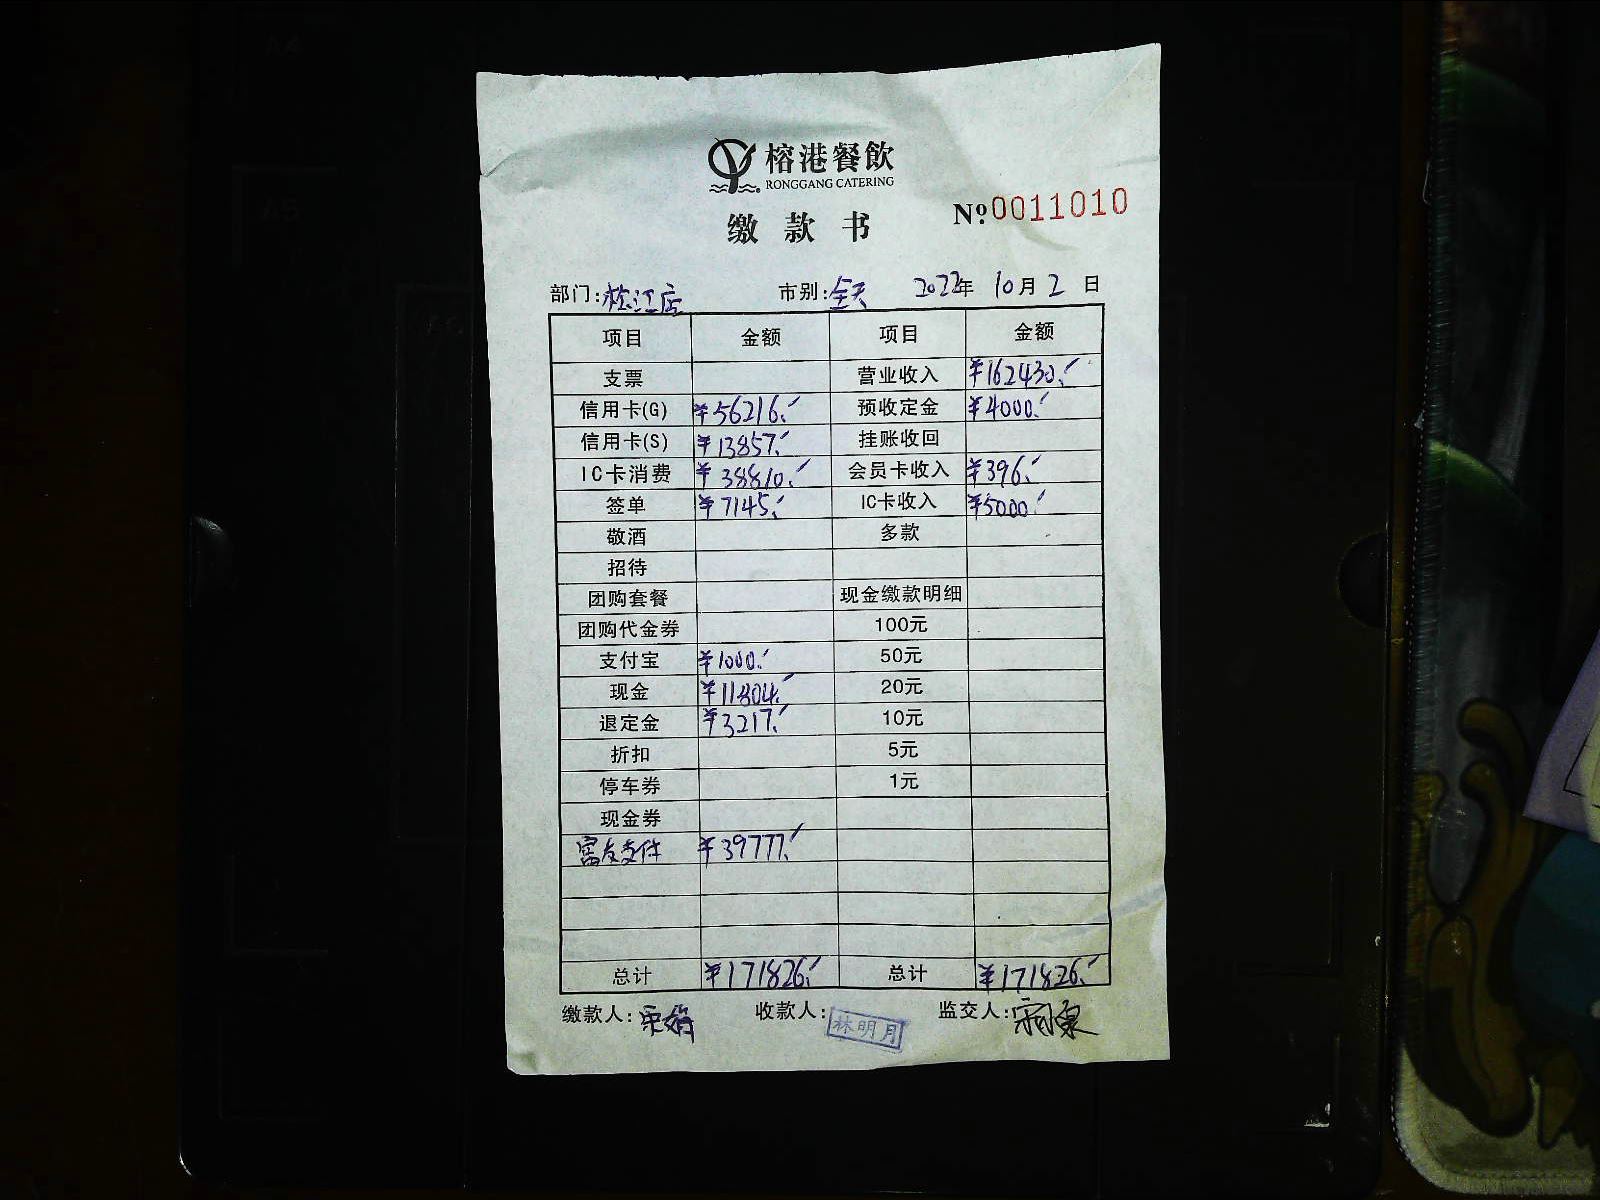 榕港餐飲
RONGGANG CATERING
缴款书
№0011010
部门:松江店 市别:全天 2022年10月2日
项目 金额 项目 金额
支票 营业收入 ¥162430.-
信用卡(G) ¥56216.- 预收定金 ¥4000.-
信用卡(S) ¥13857.- 挂账收回
IC卡消费 ¥38810.- 会员卡收入 ¥396.-
签单 ¥7145.- IC卡收入 ¥5000.-
敬酒 多款
招待
团购套餐 现金缴款明细
团购代金券 100元
支付宝 ¥1000.- 50元
现金 ¥11804.- 20元
退定金 ¥3217.- 10元
折扣 5元
停车券 1元
现金券
富友支付 ¥39777.-
总计 ¥171826.- 总计 ¥171826.-
缴款人: 收款人:林明月 监交人:
A4
A5